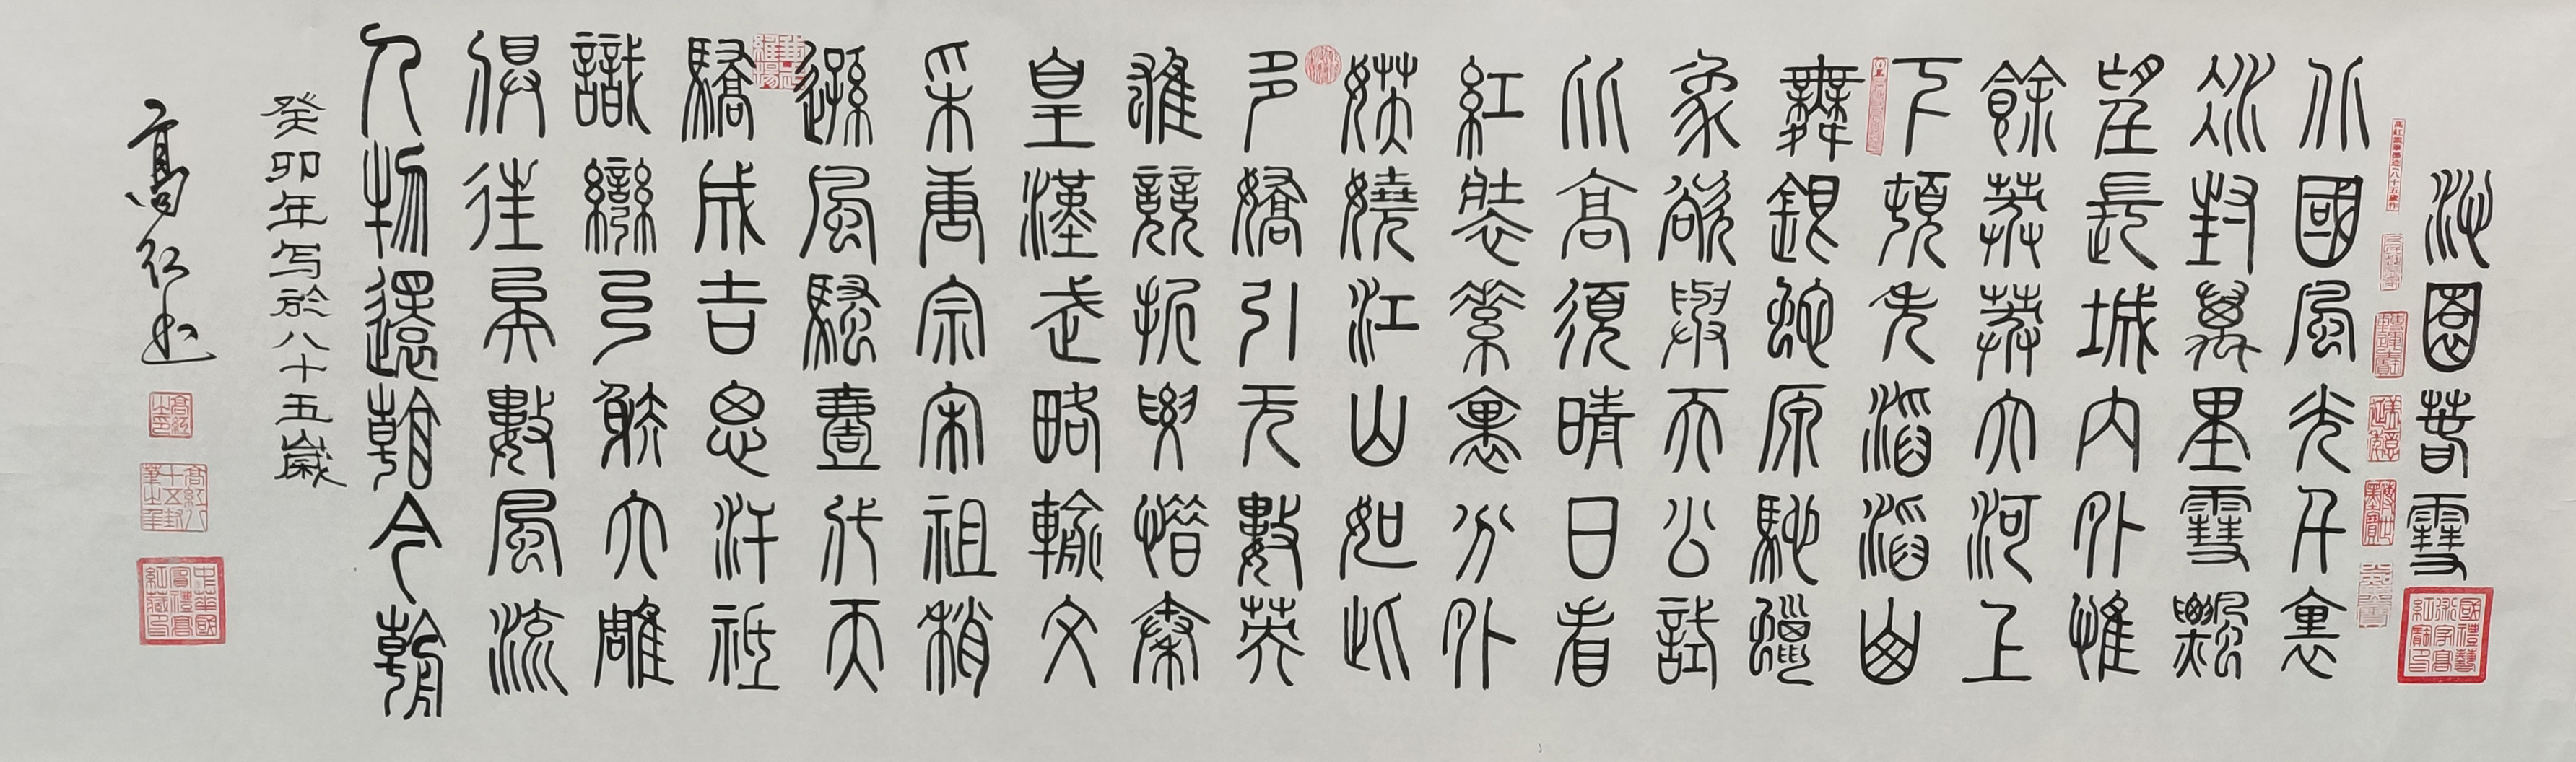 沁園春雪
北國風光千裏
冰封萬里雪飄
望長城內外惟
餘莽莽大河上
下頓失滔滔山
舞銀蛇原馳蠟
象欲與天公試
比高須晴日看
紅裝素裹分外
妖嬈江山如此
多嬌引无數英
雄競折腰惜秦
皇漢武略輸文
采唐宗宋祖稍
遜風騷壹代天
驕成吉思汗祇
識彎弓射大雕
俱往矣數風流
人物還看今朝
癸卯年写於八十五歲
高红书